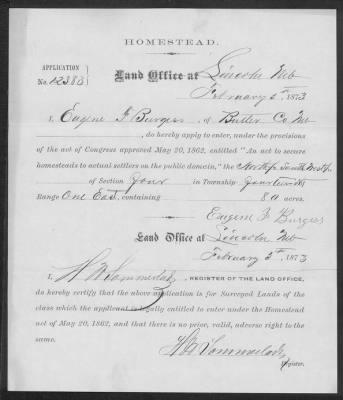 HOMESTEAD.
APPLICATION
No. 12383
Land Office at Lincoln Neb
February 5th, 1873
I, Eugene F Burgess, of Butler Co Neb
, do hereby apply to enter, under the provisions
of the act of Congress approved May 20, 1862, entitled "An act to secure
homesteads to actual settlers on the public domain," the North ½ South West ¼
of Section Four in Township Fourteen N
Range One East, containing 80 acres.
Eugene F Burgess
Land Office at Lincoln Neb
February 5th, 1873
I, , REGISTER OF THE LAND OFFICE,
do hereby certify that the above application is for Surveyed Lands of the
class which the applicant is legally entitled to enter under the Homestead
act of May 20, 1862, and that there is no prior, valid, adverse right to the
same.
Register.